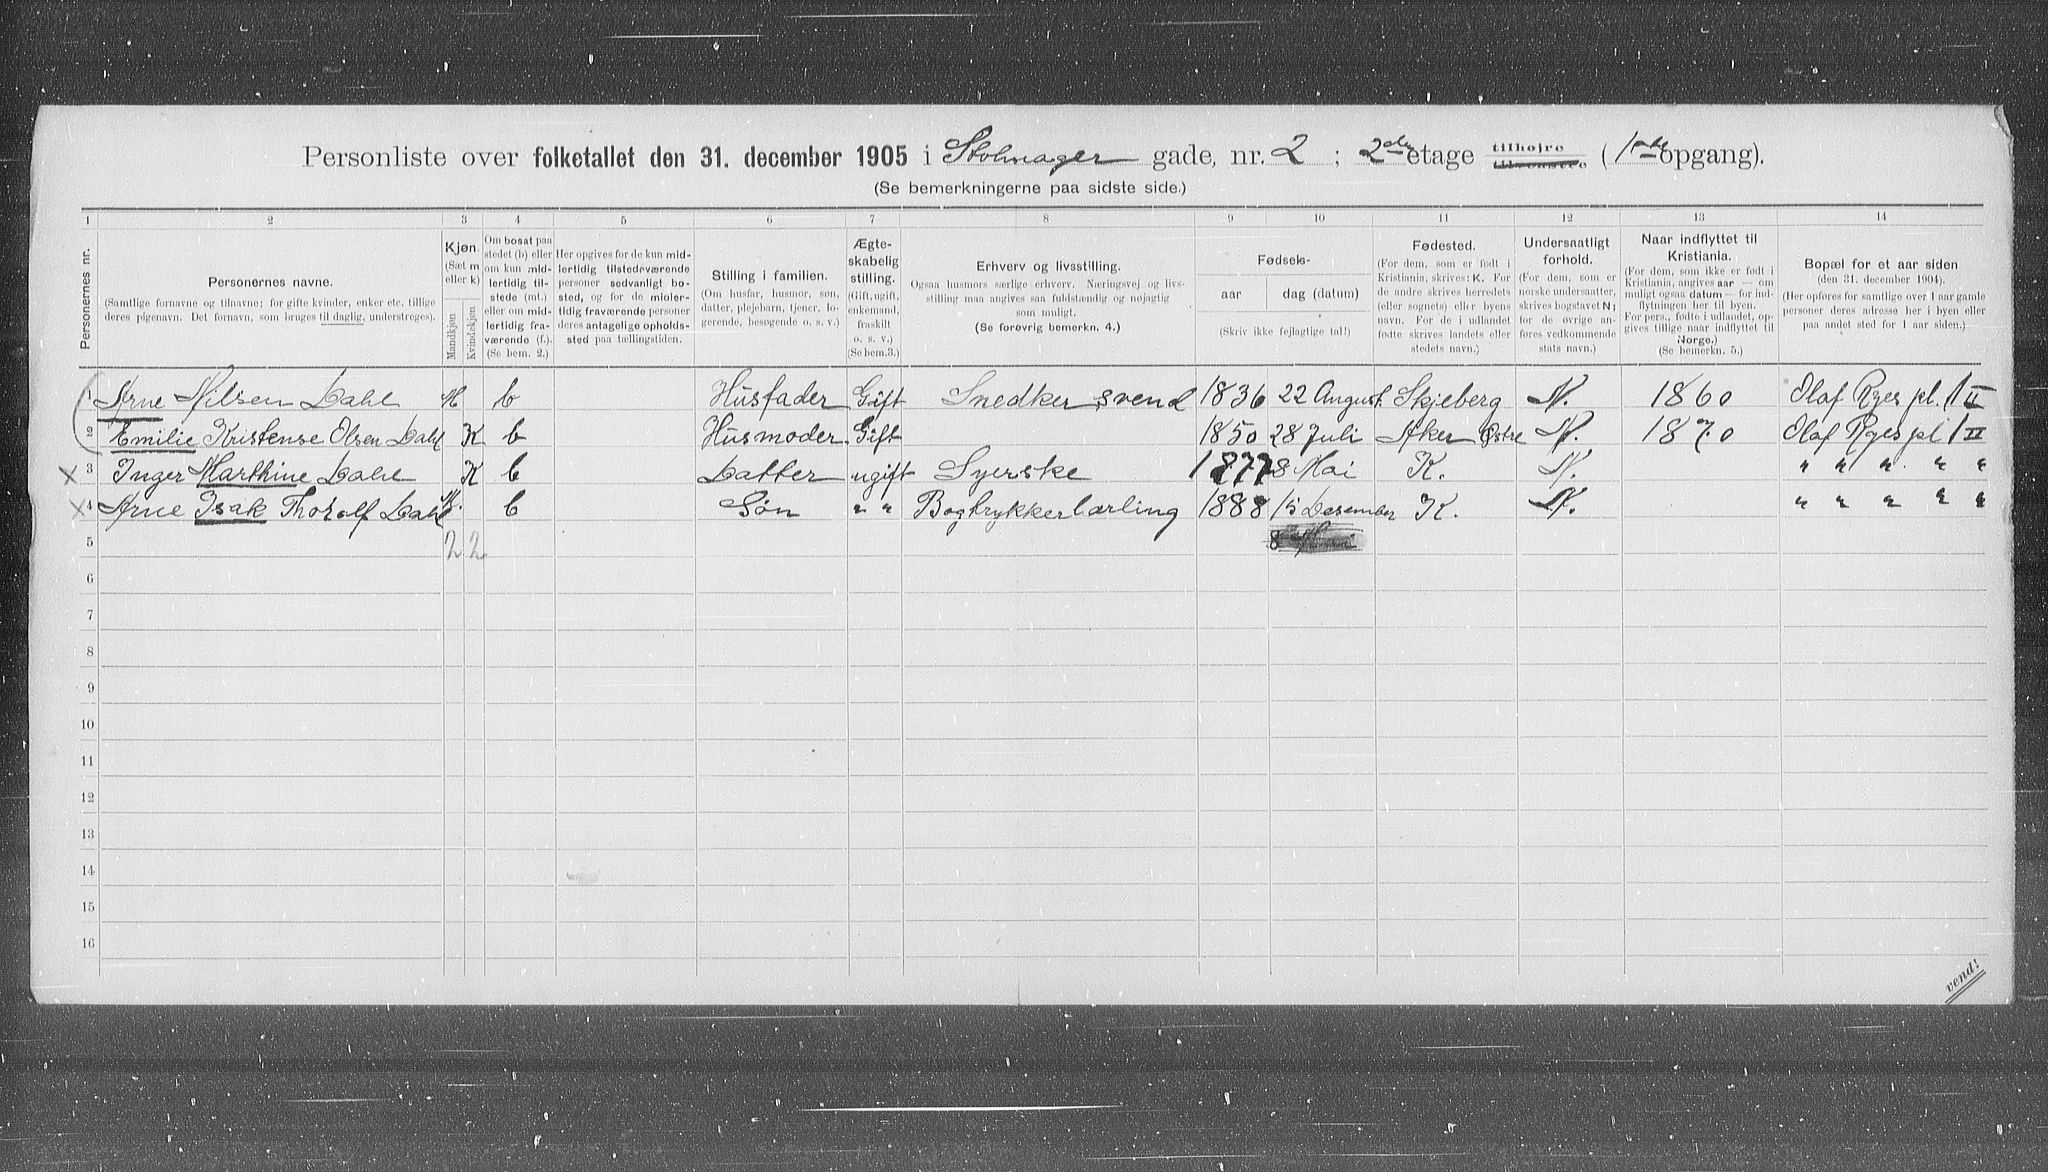 Personliste over folketallet den 31. december 1905 i Stolmager gade, nr. 2 ; 2den etage tilhøjre tilvenstre (1ste opgang).
(Se bemerkningerne paa sidste side.)
1 2 3 4 5 6 7 8 9 10 11 12 13 14
Personernes nr.
Personernes navne.
(Samtlige fornavne og tilnavne; for gifte kvinder, enker etc. tillige
deres pigenavn. Det fornavn, som bruges til daglig, understreges).
Kjøn.
(Sæt m
eller k)
Mandkjøn
Kvindekjøn
Om bosat paa
stedet (b) eller
om kun mid-
lertidig til-
stede (mt.)
eller om mid-
lertidig fra-
værende (f.).
(Se bem. 2.)
Her opgives for de kun mid-
lertidig tilstedeværende
personer sedvanligt bo-
sted, og for de midler-
tidig fraværende personer
deres antagelige opholds-
sted paa tællingstiden.
Stilling i familien.
(Om husfar, husmor, søn,
datter, plejebarn, tjener, lo-
gerende, besøgende o. s. v.)
Ægte-
skabelig
stilling.
(Gift, ugift,
enkemand,
fraskilt
o. s. v.)
(Se bem. 3.)
Erhverv og livsstilling.
Ogsaa husmors særlige erhverv. Næringsvej og livs-
stilling maa angives saa fuldstændig og nøjagtig
som muligt.
(Se forøvrig bemerkn. 4.)
Fødsels-
aar
dag (datum)
(Skriv ikke fejlagtige tal!)
Fødested.
(For dem, som er født i
Kristiania, skrives: K. For
de andre skrives herredets
(eller sognets) eller byens
navn. For de i udlandet
fødte skrives landets eller
stedets navn.)
Undersaatligt
forhold.
(For dem, som er
norske undersaatter,
skrives bogstavet N;
for de øvrige an-
føres vedkommende
stats navn.)
Naar indflyttet til
Kristiania.
(For dem, som ikke er født i
Kristiania, angives aar — om
muligt ogsaa datum — for ind-
flytningen her til byen.
For pers., fødte i udlandet, op-
gives tillige naar indflyttet til
Norge.)
(Se bemerkn. 5.)
Bopæl for et aar siden
(den 31. december 1904).
(Her opføres for samtlige over 1 aar gamle
personer deres adresse her i byen eller
paa andet sted for 1 aar siden.)
1 Arne Nilsen Dahl M b Husfader Gift Snedker svend 1836 22 August Skjeberg N. 1860 Olaf Ryes pl. 1 II
2 Emilie Kristense Olsen Dahl K b Husmoder Gift 1850 28 Juli Aker Østre N. 1870 Olaf Ryes pl 1 II
3 Inger Marthine Dahl K b Datter ugift Syerske 1877 8 Mai K. N. " " " " "
4 Arne Isak Thoralf Dahl M. b Søn " " Bogtrykkerlærling 1888 15 Desember K. N. " " " " "
5 2 2 8 Mai
6
7
8
9
10
11
12
13
14
15
16
vend!